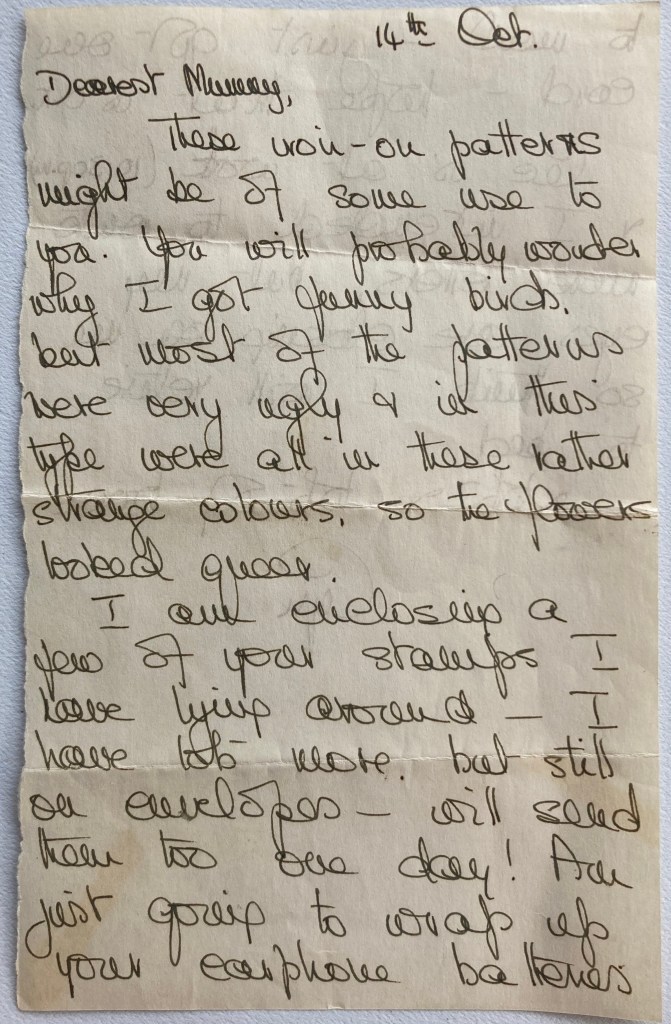 14th Oct.
Dearest Mummy,
These iron-on patterns
might be of some use to
you. You will probably wonder
why I got funny birds.
but most of the patterns
were very ugly & in this
type were all in these rather
strange colours, so the flowers
looked queer.
I am enclosing a
few of your stamps I
have lying around – I
have lots more. but still
on envelopes – will send
them too one day! Am
just going to wrap up
your earphone batteries